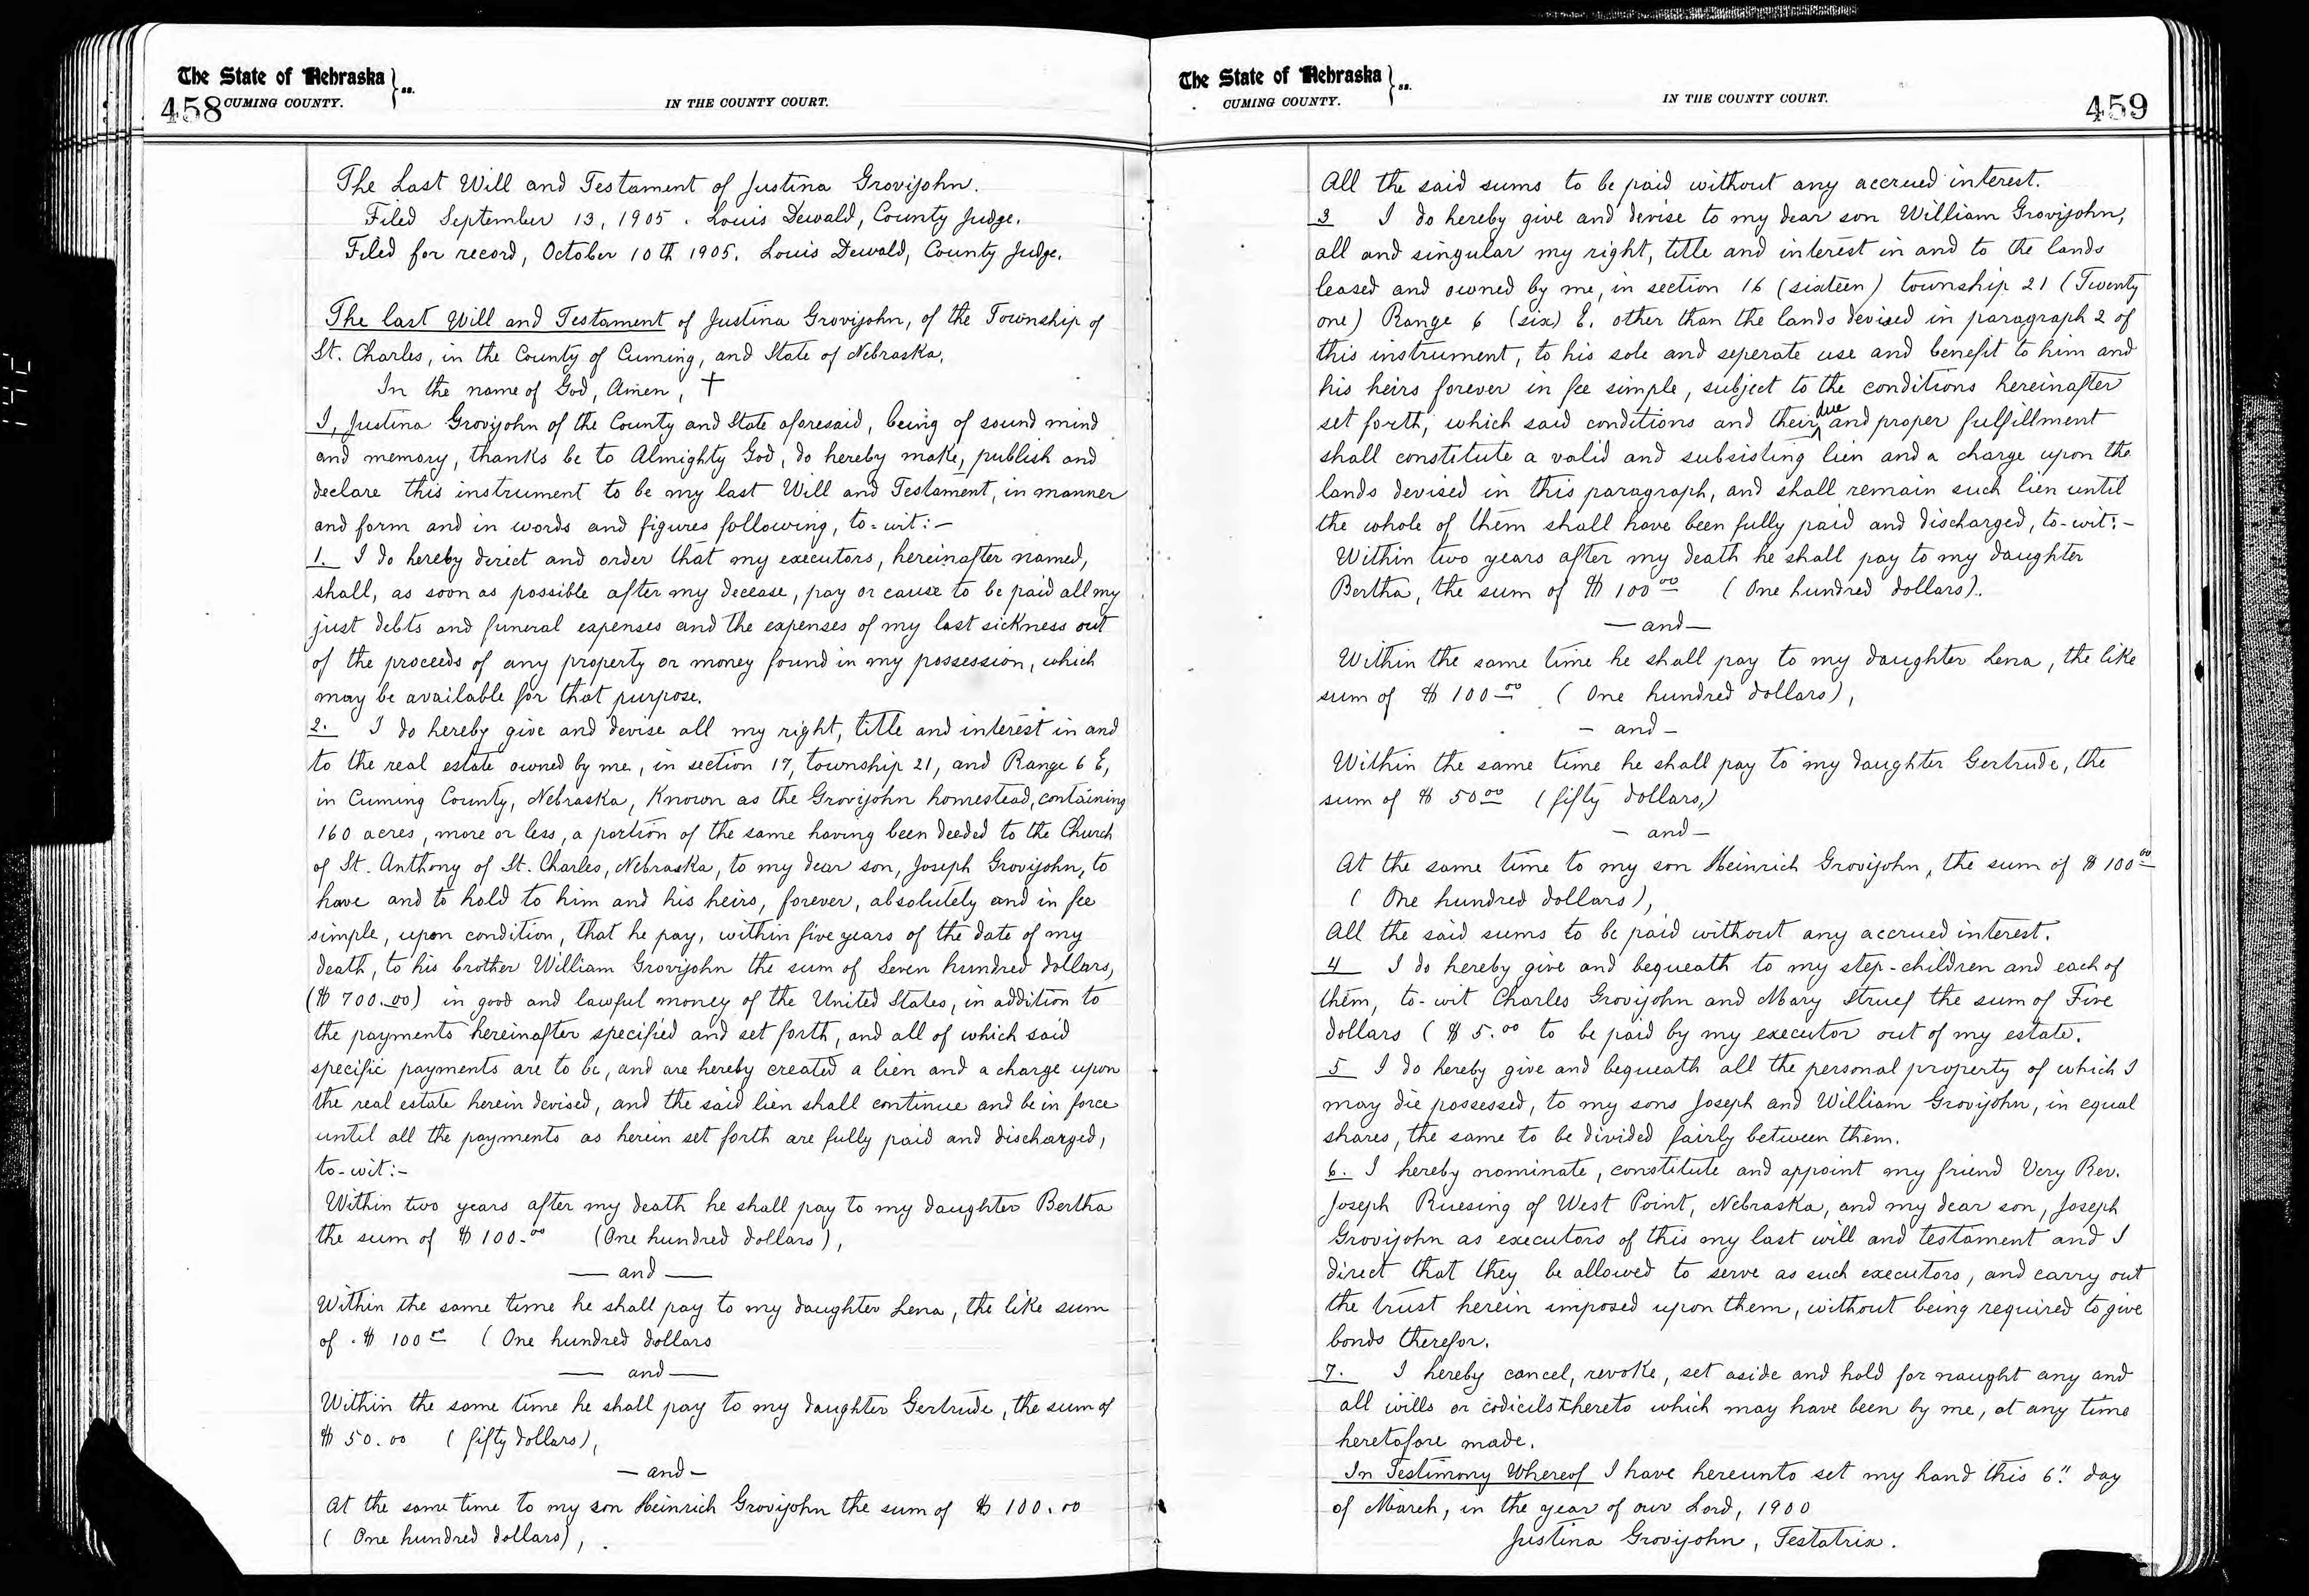 The State of Nebraska } ss.
458 CUMING COUNTY.
IN THE COUNTY COURT.
The Last Will and Testament of Justina Grovijohn.
Filed September 13, 1905. Louis Dewald, County Judge.
Filed for record, October 10th 1905. Louis Dewald, County Judge.
The last Will and Testament of Justina Grovijohn, of the Township of
St. Charles, in the County of Cuming, and State of Nebraska,
In the name of God, Amen, †
I, Justina Grovijohn of the County and State aforesaid, being of sound mind
and memory, thanks be to Almighty God, do hereby make, publish and
declare this instrument to be my last Will and Testament, in manner
and form and in words and figures following, to-wit:-
1. I do hereby direct and order that my executors, hereinafter named,
shall, as soon as possible after my decease, pay or cause to be paid all my
just debts and funeral expenses and the expenses of my last sickness out
of the proceeds of any property or money found in my possession, which
may be available for that purpose.
2. I do hereby give and devise all my right, title and interest in and
to the real estate owned by me, in section 17, township 21, and Range 6 E,
in Cuming County, Nebraska, Known as the Grovijohn homestead, containing
160 acres, more or less, a portion of the same having been deeded to the Church
of St. Anthony of St. Charles, Nebraska, to my dear son, Joseph Grovijohn, to
have and to hold to him and his heirs, forever, absolutely and in fee
simple, upon condition, that he pay, within five years of the date of my
death, to his brother William Grovijohn the sum of Seven hundred dollars,
($ 700.00) in good and lawful money of the United States, in addition to
the payments hereinafter specified and set forth, and all of which said
specific payments are to be, and are hereby created a lien and a charge upon
the real estate herein devised, and the said lien shall continue and be in force
until all the payments as herein set forth are fully paid and discharged,
to-wit:-
Within two years after my death he shall pay to my daughter Bertha
the sum of $ 100.00 (One hundred dollars),
— and —
Within the same time he shall pay to my daughter Lena, the like sum
of $ 100 00 ( One hundred dollars
— and —
Within the same time he shall pay to my daughter Gertrude, the sum of
$ 50.00 ( fifty dollars),
— and —
At the same time to my son Heinrich Grovijohn the sum of $ 100.00
( One hundred dollars),
The State of Nebraska } ss.
CUMING COUNTY.
IN THE COUNTY COURT.
459
All the said sums to be paid without any accrued interest.
3 I do hereby give and devise to my dear son William Grovijohn,
all and singular my right, title and interest in and to the lands
leased and owned by me, in section 16 (sixteen) township 21 (Twenty
one) Range 6 (six) E. other than the lands devised in paragraph 2 of
this instrument, to his sole and seperate use and benefit to him and
his heirs forever in fee simple, subject to the conditions hereinafter
set forth, which said conditions and their due and proper fulfillment
shall constitute a valid and subsisting lien and a charge upon the
lands devised in this paragraph, and shall remain such lien until
the whole of them shall have been fully paid and discharged, to-wit:-
Within two years after my death he shall pay to my daughter
Bertha, the sum of $ 100 00 ( One hundred dollars).
— and —
Within the same time he shall pay to my daughter Lena, the like
sum of $ 100 00 ( One hundred dollars),
— and —
Within the same time he shall pay to my daughter Gertrude, the
sum of $ 50 00 ( fifty dollars,)
— and —
At the same time to my son Heinrich Grovijohn, the sum of $ 100 00
( One hundred dollars),
All the said sums to be paid without any accrued interest.
4 I do hereby give and bequeath to my step-children and each of
them, to-wit Charles Grovijohn and Mary Struef the sum of Five
dollars ( $ 5.00 to be paid by my executor out of my estate.
5 I do hereby give and bequeath all the personal property of which I
may die possessed, to my sons Joseph and William Grovijohn, in equal
shares, the same to be divided fairly between them.
6. I hereby nominate, constitute and appoint my friend Very Rev.
Joseph Ruesing of West Point, Nebraska, and my dear son, Joseph
Grovijohn as executors of this my last will and testament and I
direct that they be allowed to serve as such executors, and carry out
the trust herein imposed upon them, without being required to give
bonds therefor.
7. I hereby cancel, revoke, set aside and hold for naught any and
all wills or codicils thereto which may have been by me, at any time
heretofore made.
In Testimony Whereof I have hereunto set my hand this 6" day
of March, in the year of our Lord, 1900
Justina Grovijohn, Testatrix.